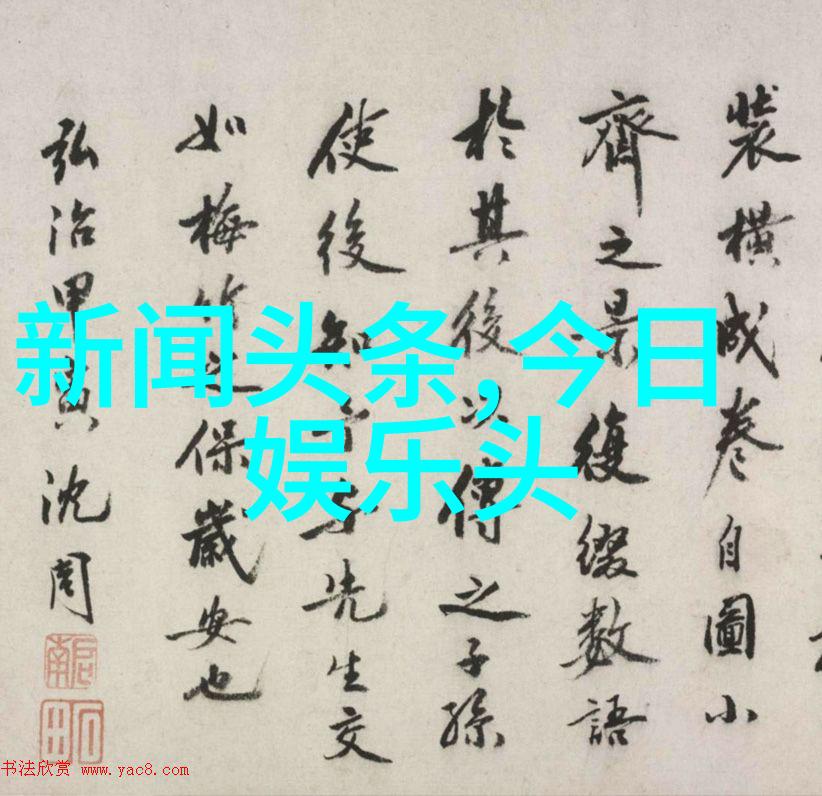 裝橫成卷自圖小
齋之景復綴數語
於其後以傳之子孫
使後知予与先生交
如梅竹之保歲安也
弘治甲寅沈周
啟南
新闻头条,今日
娱乐头
书法欣赏 www.yac8.com